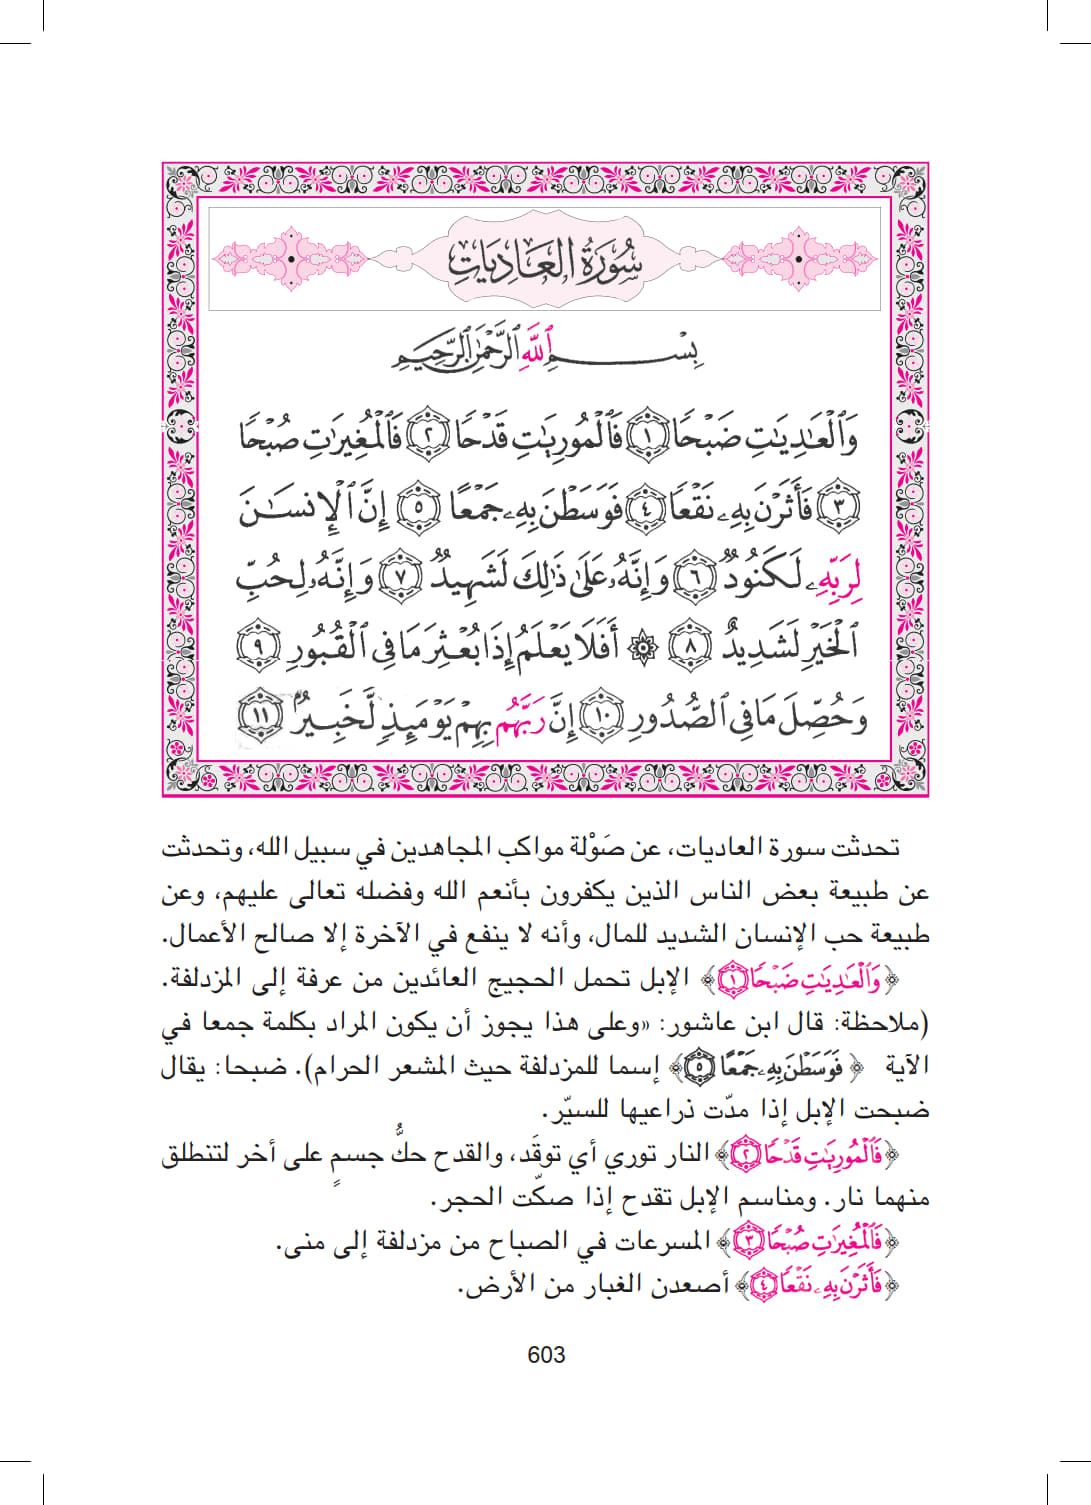 سُورَةُ العَادِيَاتِ
بِسْمِ ٱللَّهِ ٱلرَّحْمَٰنِ ٱلرَّحِيمِ
وَٱلْعَٰدِيَٰتِ ضَبْحًا ١ فَٱلْمُورِيَٰتِ قَدْحًا ٢ فَٱلْمُغِيرَٰتِ صُبْحًا
٣ فَأَثَرْنَ بِهِۦ نَقْعًا ٤ فَوَسَطْنَ بِهِۦ جَمْعًا ٥ إِنَّ ٱلْإِنسَٰنَ
لِرَبِّهِۦ لَكَنُودٌ ٦ وَإِنَّهُۥ عَلَىٰ ذَٰلِكَ لَشَهِيدٌ ٧ وَإِنَّهُۥ لِحُبِّ
ٱلْخَيْرِ لَشَدِيدٌ ٨ ۞ أَفَلَا يَعْلَمُ إِذَا بُعْثِرَ مَا فِى ٱلْقُبُورِ ٩
وَحُصِّلَ مَا فِى ٱلصُّدُورِ ١٠ إِنَّ رَبَّهُم بِهِمْ يَوْمَئِذٍ لَّخَبِيرٌۢ ١١
تحدثت سورة العاديات، عن صَوْلة مواكب المجاهدين في سبيل الله، وتحدثت
عن طبيعة بعض الناس الذين يكفرون بأنعم الله وفضله تعالى عليهم، وعن
طبيعة حب الإنسان الشديد للمال، وأنه لا ينفع في الآخرة إلا صالح الأعمال.
﴿وَٱلْعَٰدِيَٰتِ ضَبْحًا ١﴾ الإبل تحمل الحجيج العائدين من عرفة إلى المزدلفة.
(ملاحظة: قال ابن عاشور: «وعلى هذا يجوز أن يكون المراد بكلمة جمعا في
الآية ﴿فَوَسَطْنَ بِهِۦ جَمْعًا ٥﴾ إسما للمزدلفة حيث المشعر الحرام). ضبحا: يقال
ضبحت الإبل إذا مدّت ذراعيها للسيّر.
﴿فَٱلْمُورِيَٰتِ قَدْحًا ٢﴾ النار توري أي توقَد، والقدح حكُّ جسمٍ على أخر لتنطلق
منهما نار. ومناسم الإبل تقدح إذا صكّت الحجر.
﴿فَٱلْمُغِيرَٰتِ صُبْحًا ٣﴾ المسرعات في الصباح من مزدلفة إلى منى.
﴿فَأَثَرْنَ بِهِۦ نَقْعًا ٤﴾ أصعدن الغبار من الأرض.
603